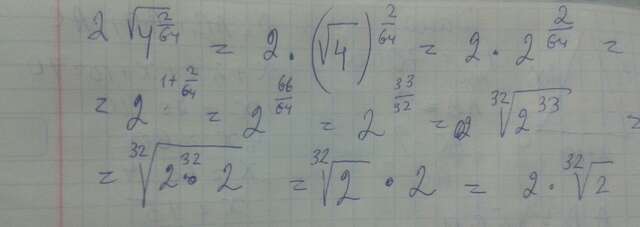 2 √(4^(2/64)) = 2 · (√4)^(2/64) = 2 · 2^(2/64) =
= 2^(1+2/64) = 2^(66/64) = 2^(33/32) = ³²√(2^33) =
= ³²√(2^32 · 2) = ³²√2 · 2 = 2 · ³²√2